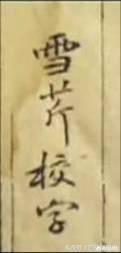 雪芹校字